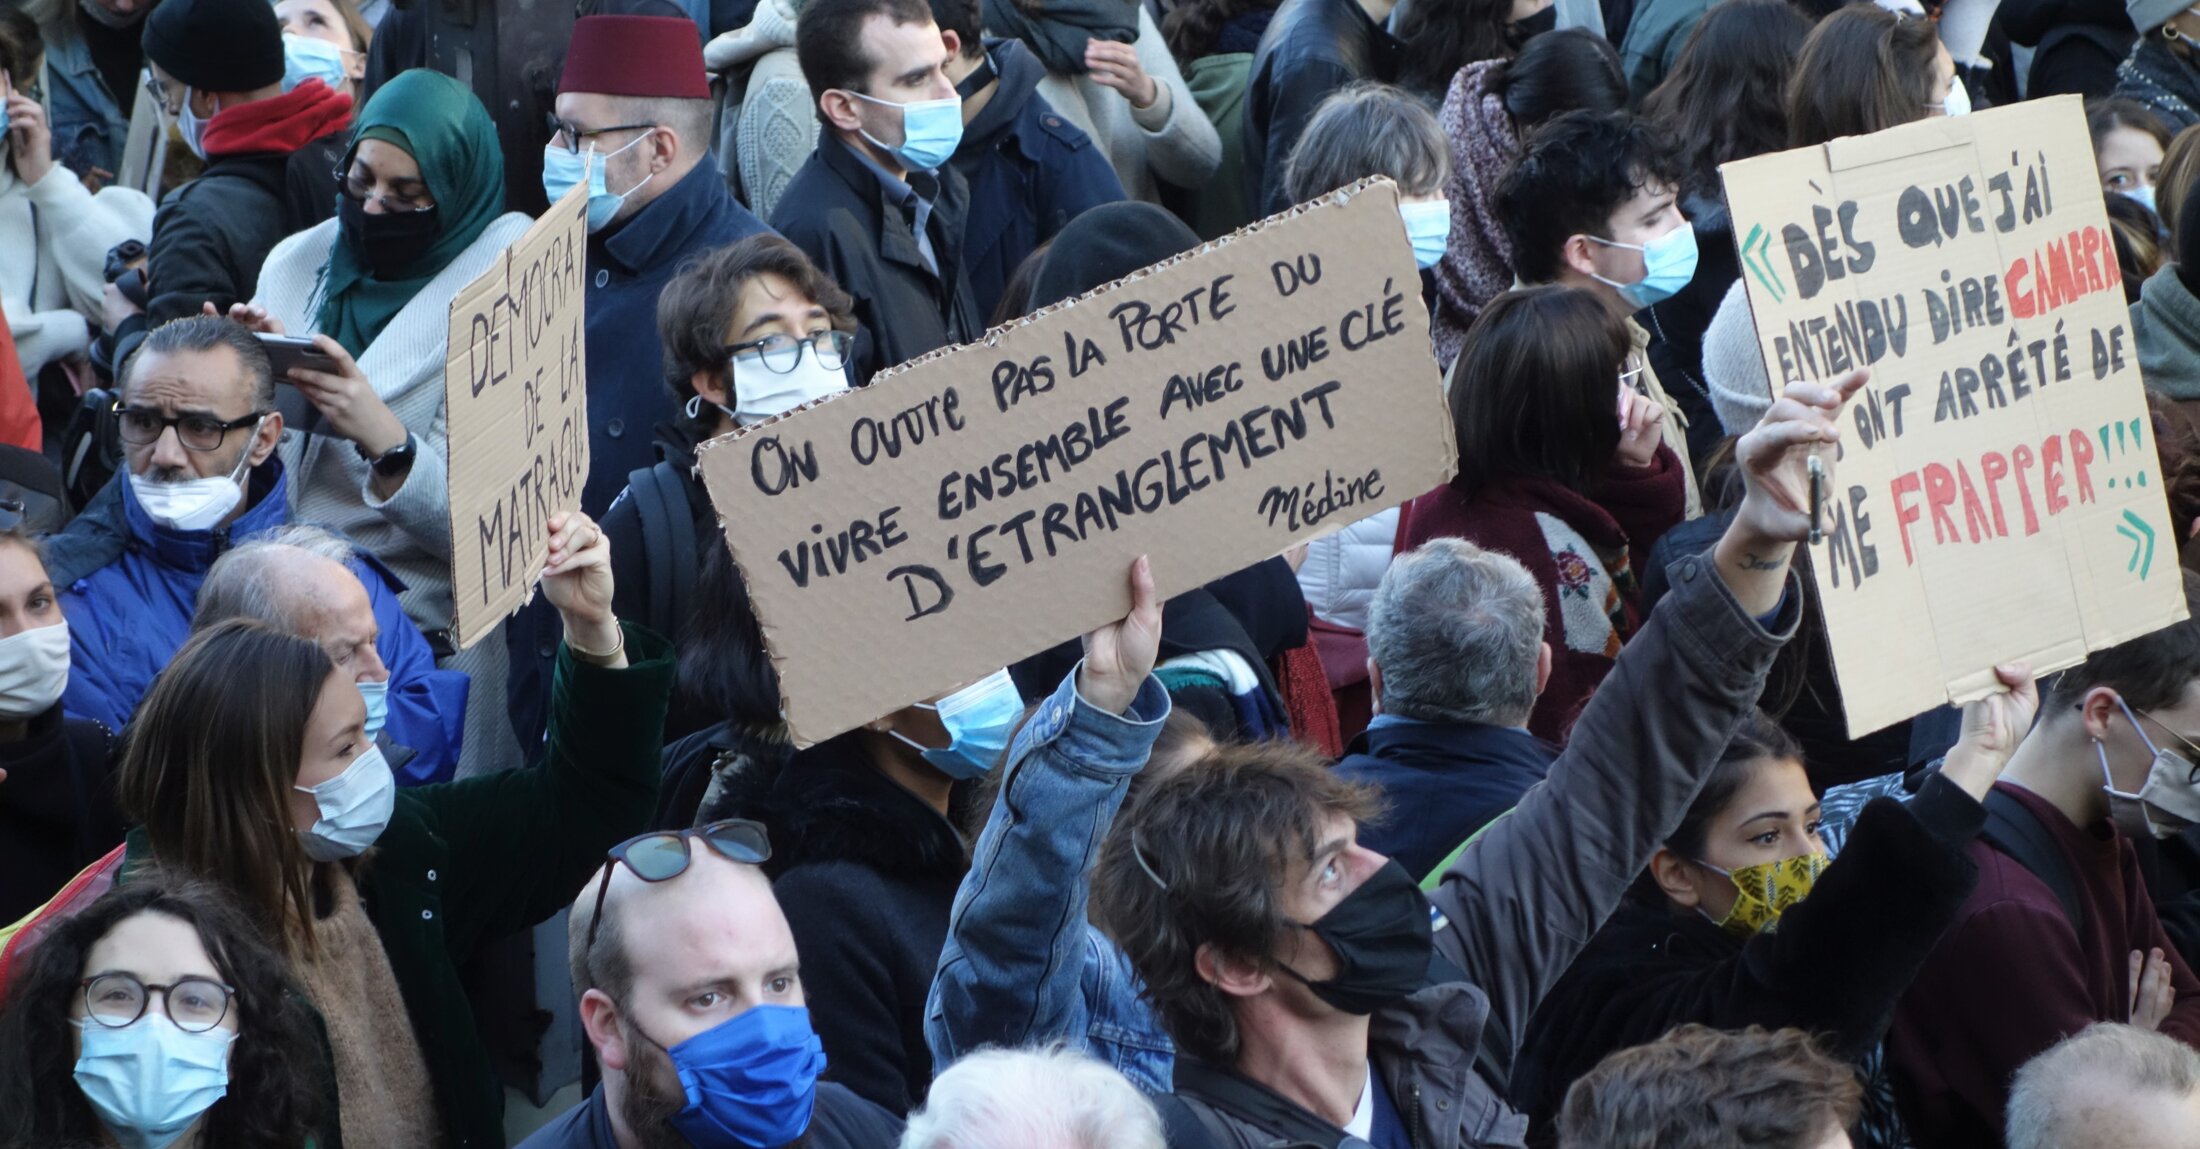 DE LA
ON OUVRE PAS LA PORTE DU
VIVRE ENSEMBLE AVEC UNE CLÉ
D'ETRANGLEMENT
Médine
«DÈS QUE J'AI
ENTENDU DIRE CAMERA
ONT ARRÊTÉ DE
ME FRAPPER!!!
»